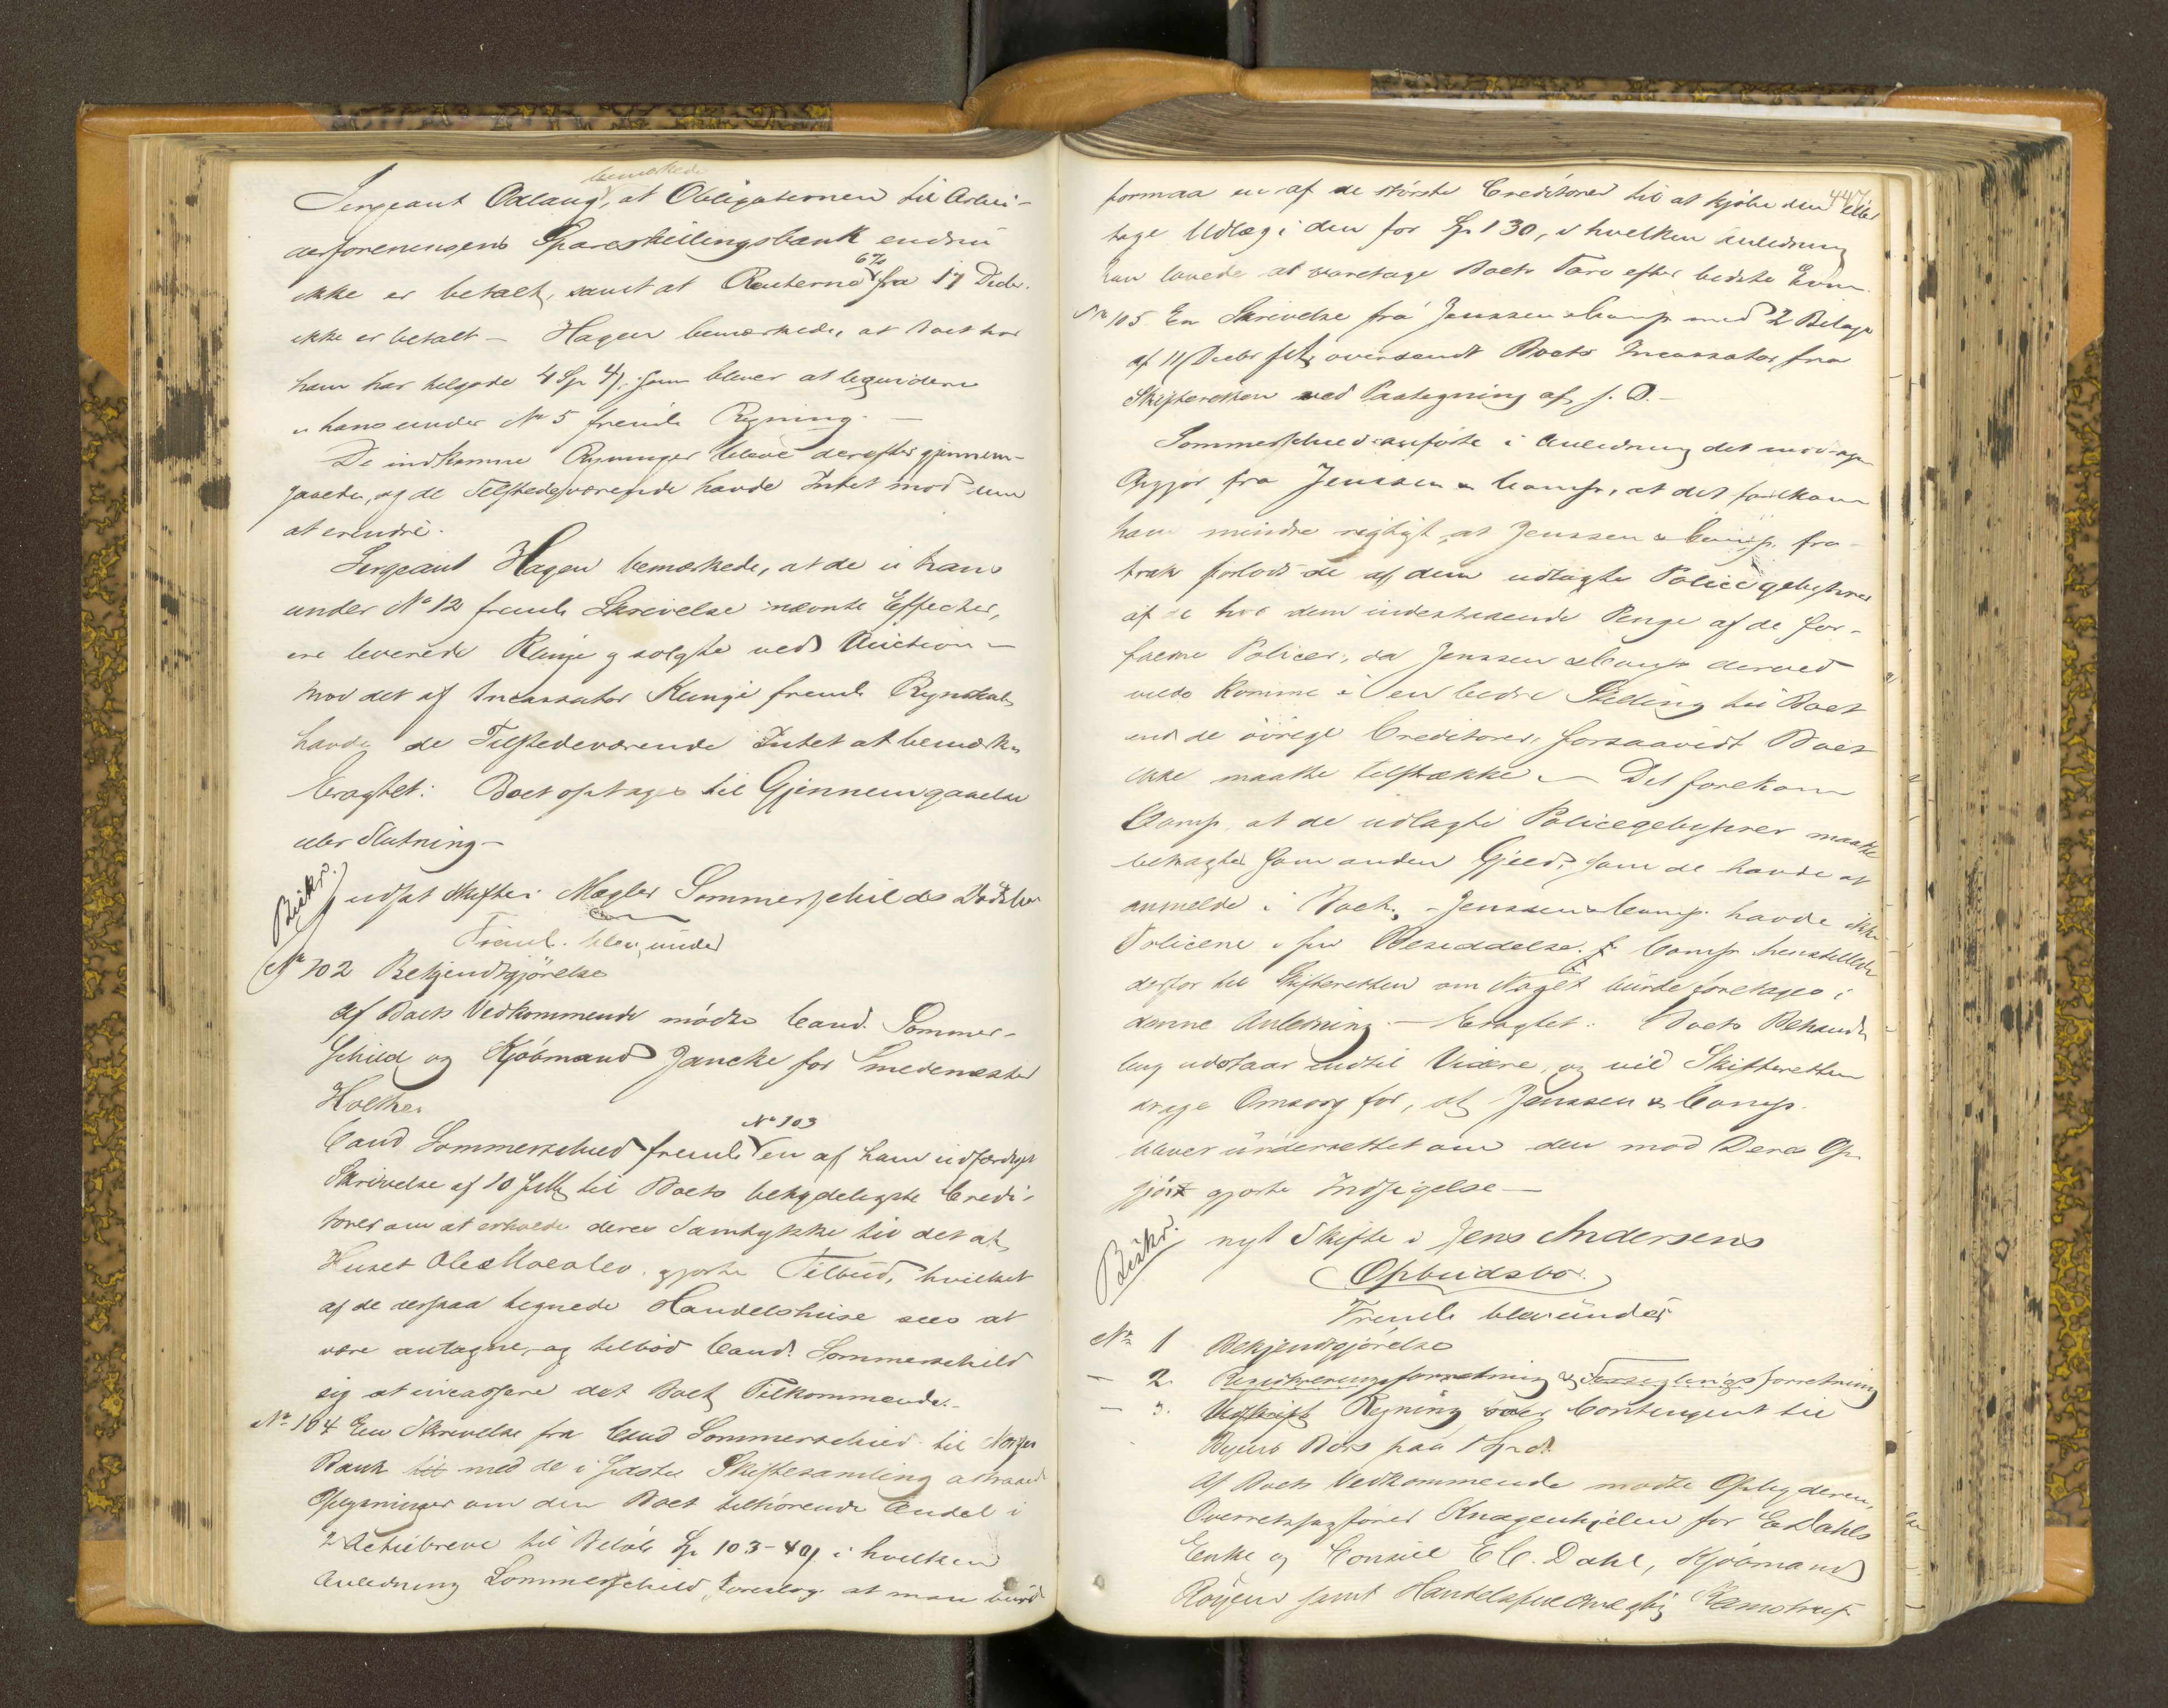 bemærkede
Sergeant Oxlaug, at Obligationen til Arbei-
derforeningens Spareskillingsbank endnu
6%
ikke er betalt, samt at Renterne fra 17 Decbr.
ikke er betalt – Hagen bemærkede, at Boet hos
ham har tilgode 4 Sp 4 som bliver at liqvidere
i hans under No 5 freml. Regning. –
De indkomne Regninger bleve derefter gjennem-
gaaede, og de Tilstedeværende havde Intet mod dem
at erindre.
Sergeant Hagen bemærkede, at de i hans
under No 12 freml. Skrivelse nævnte Effecter,
ere leverede Runge og solgte ved Auction –
Mod det af Incassator Runge freml. Regnskab
havde de Tilstedeværende Intet at bemærke
Eragtet: Boet optages til Gjennemgaaelse
eller Slutning –
Beskr. udsat Skifte i Mægler Sommerschilds Dødsbo
Freml. blev under
No 102 Bekjendtgjörelse
Af Boets Vedkommende mødte Cand. Sommer-
schild og Kjöbmand Jancke for Smedemester
Holther
No 103
Cand Sommerschild freml. en af ham udfærdiget
Skrivelse af 10 til Boets betydeligste Credi-
torer om at erholde deres Samtykke til det af
Huset Ole Moe gjorte Tilbud, hvilket
af de derpaa tegnede Handelshuse sees at
være antagne, og tilbød Cand. Sommerschild
sig at incassere det Boet Tilkommende. –
No 104 En Skrivelse fra Cand Sommerschild til Norges
Bank til med de i sidste Skiftesamling attraaede
Oplysninger om den Boet tilhörende Andel i
2 Actiebreve til Belöb Sp 103-49 i hvilken
Anledning Sommerschild foreslog at man burde
447
formaa en af de störste Creditorer til at kjöbe den eller
tage Udlæg i den for Sp 130, i hvilken Anledning
han lovede at varetage Boets Tarv efter bedste Evne.
No 105. En Skrivelse fra Jenssen & Comp med 2 Bilage
af 11 Decbr oversendt Boets Incassator fra
Skifteretten ved Paategning af s. D. –
Sommerschild anførte i Anledning det modtagne
Opgjör fra Jenssen & Comp, at det forekom
ham mindre rigtigt, at Jenssen & Comp. fra-
trak forlods de af dem udlagte Policegebyhrer
af de hos dem indestaaende Penge af de for-
faldne Policer, da Jenssen & Comp derved
vilde komme i en bedre Stilling til Boet
end de övrige Creditorer, forsaavidt Boet
ikke maatte tilstrække – Det forekom
Comp, at de udlagte Policegebyhrer maatte
betragtes som anden Gjeld, som de havde at
anmelde i Boet, – Jenssen & Comp. havde ikke
Policerne i sin Besiddelse. Comp henstillede
derfor til Skifteretten om Noget burde foretages i
denne Anledning. – Eragtet: Boets Behand-
ling udstaar indtil Videre, og vil Skifteretten
drage Omsorg for, at Jenssen & Comp.
bliver underrettet om den mod Deres Op-
gjör gjorte Indsigelse –
Beskr. nyt Skifte i Jens Andersens
Opbudsbo.
Freml. blev under
No 1 Bekjendtgjörelse
– 2. Registreringsforretning og Forseglingsforretning
– 3. Udskrift Regning over Contingent til
Byens Börs paa 1 Spd.
Af Boets Vedkommende mødte Opbyderen,
Overretssagförer Knagenhjelm for E Dahls
Enke og Consul E C. Dahl, Kjöbmand
Röijem samt Handelsfuldmægtig Kamstrup